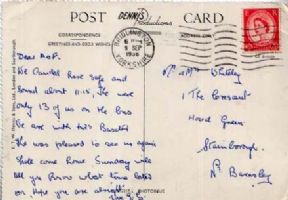 POST DENNIS Productions CARD
CORRESPONDENCE
GREETINGS AND GOOD WISHES
BRIDLINGTON
YORKSHIRE
9 SEP
1956
Dear M & P.
We Arrived here safe and
sound about 11.15, We were
only 13 of us on the bus
We are with Mrs
She was pleased to see us again
Shall come home Sunday will
let you know what time later
on Hope you are alright
Mr & Mrs
1 The Crescent
Hood Green
Stainborough
Nr Barnsley